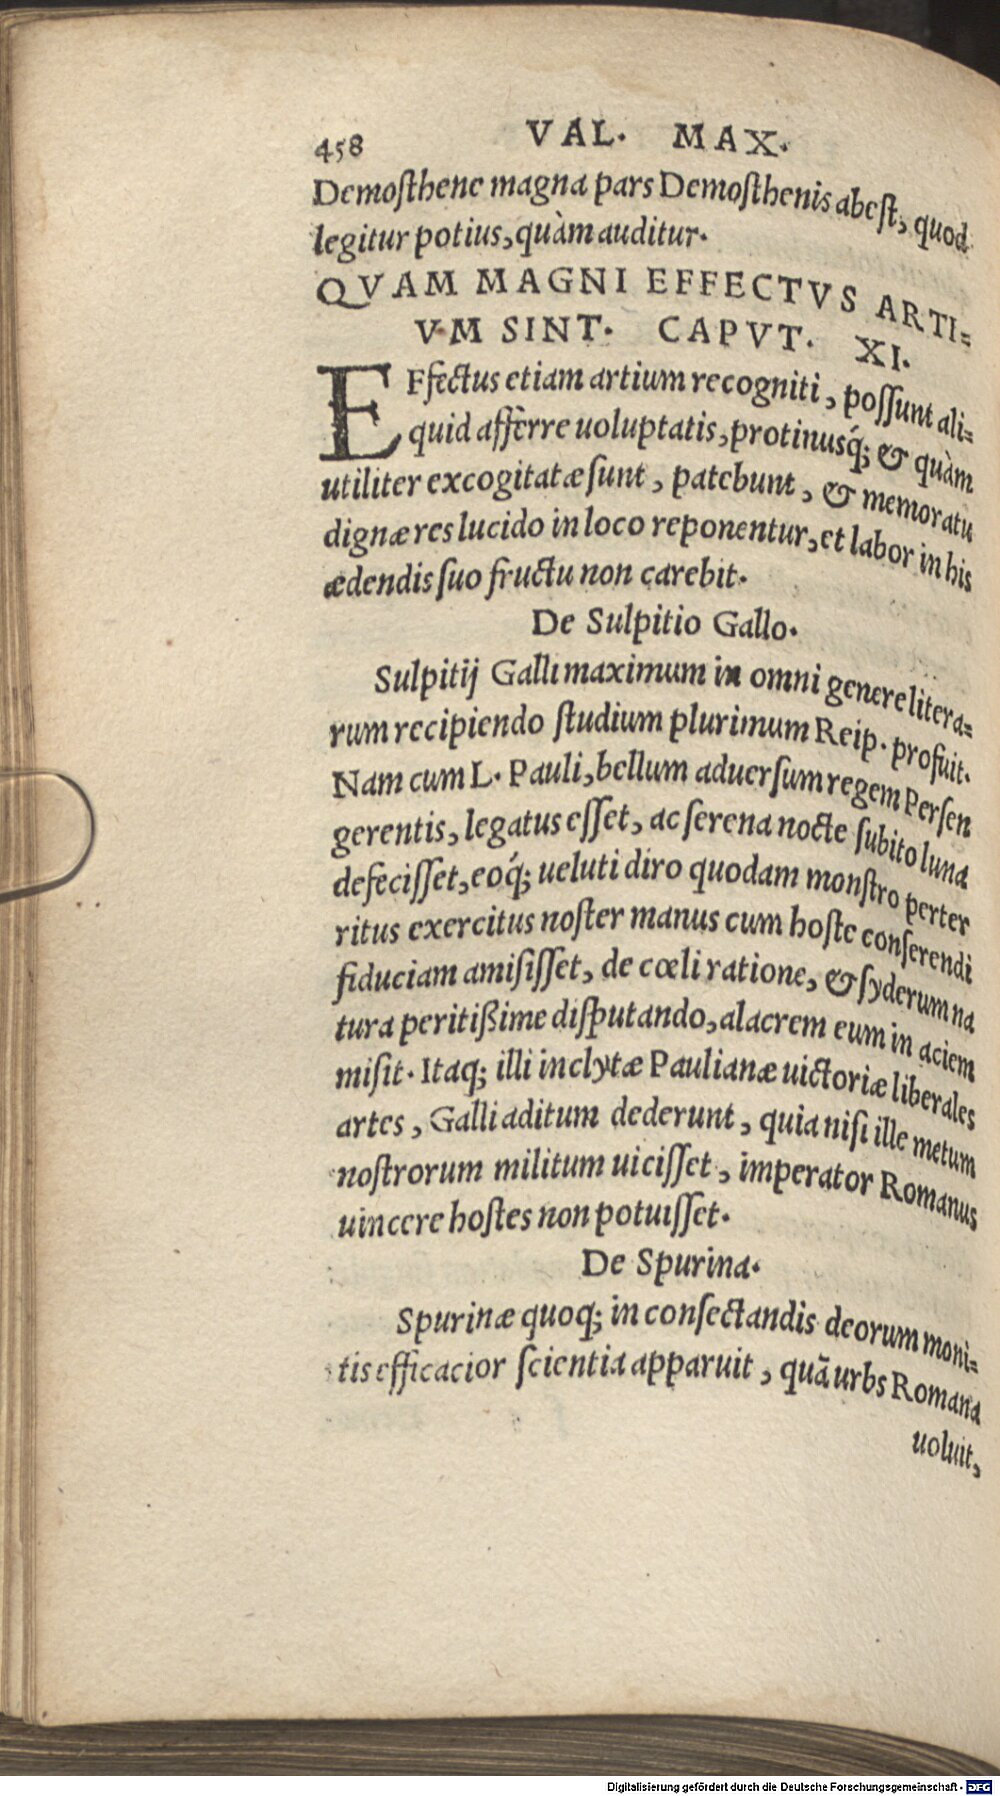 458 VAL. MAX.
Demoſthene magna pars Demoſthenis abeſt, quod
legitur potius, quàm auditur.
QVAM MAGNI EFFECTVS ARTI-
VM SINT. CAPVT. XI.
EFfectus etiam artium recogniti, poſſunt ali-
quid afferre uoluptatis, protinusq́; & quàm
utiliter excogitatæ ſunt, patebunt, & memoratu
dignæ res lucido in loco reponentur, et labor in his
ædendis ſuo fructu non carebit.
De Sulpitio Gallo.
Sulpitij Galli maximum in omni genere litera-
rum recipiendo ſtudium plurimum Reip. profuit.
Nam cum L. Pauli, bellum aduerſum regem Perſen
gerentis, legatus eſſet, ac ſerena nocte ſubito luna
defeciſſet, eoq́; ueluti diro quodam monſtro perter
ritus exercitus noſter manus cum hoſte conſerendi
fiduciam amiſiſſet, de cœli ratione, & ſyderum na
tura peritißime diſputando, alacrem eum in aciem
miſit. Itaq; illi inclytæ Paulianæ uictoriæ liberales
artes, Galli aditum dederunt, quia niſi ille metum
noſtrorum militum uiciſſet, imperator Romanus
uincere hoſtes non potuiſſet.
De Spurina.
Spurinæ quoq; in conſectandis deorum moni-
tis efficacior ſcientia apparuit, quã urbs Romana
uoluit,
Digitalisierung gefördert durch die Deutsche Forschungsgemeinschaft - DFG